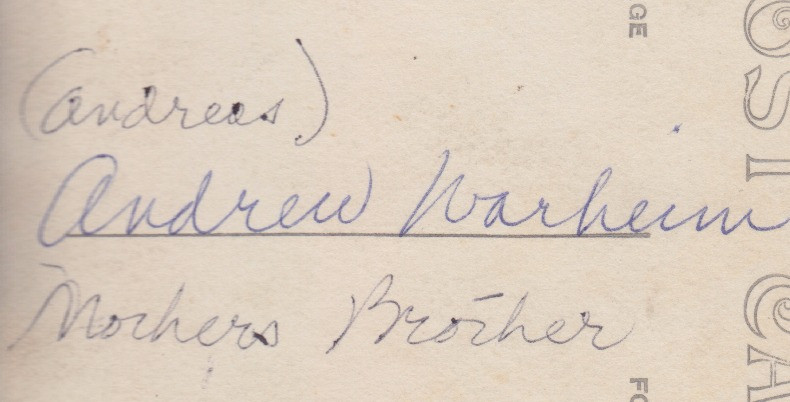 (Andreas)
Andrew Warheim
Mothers Brother
GE
OST CA
FO